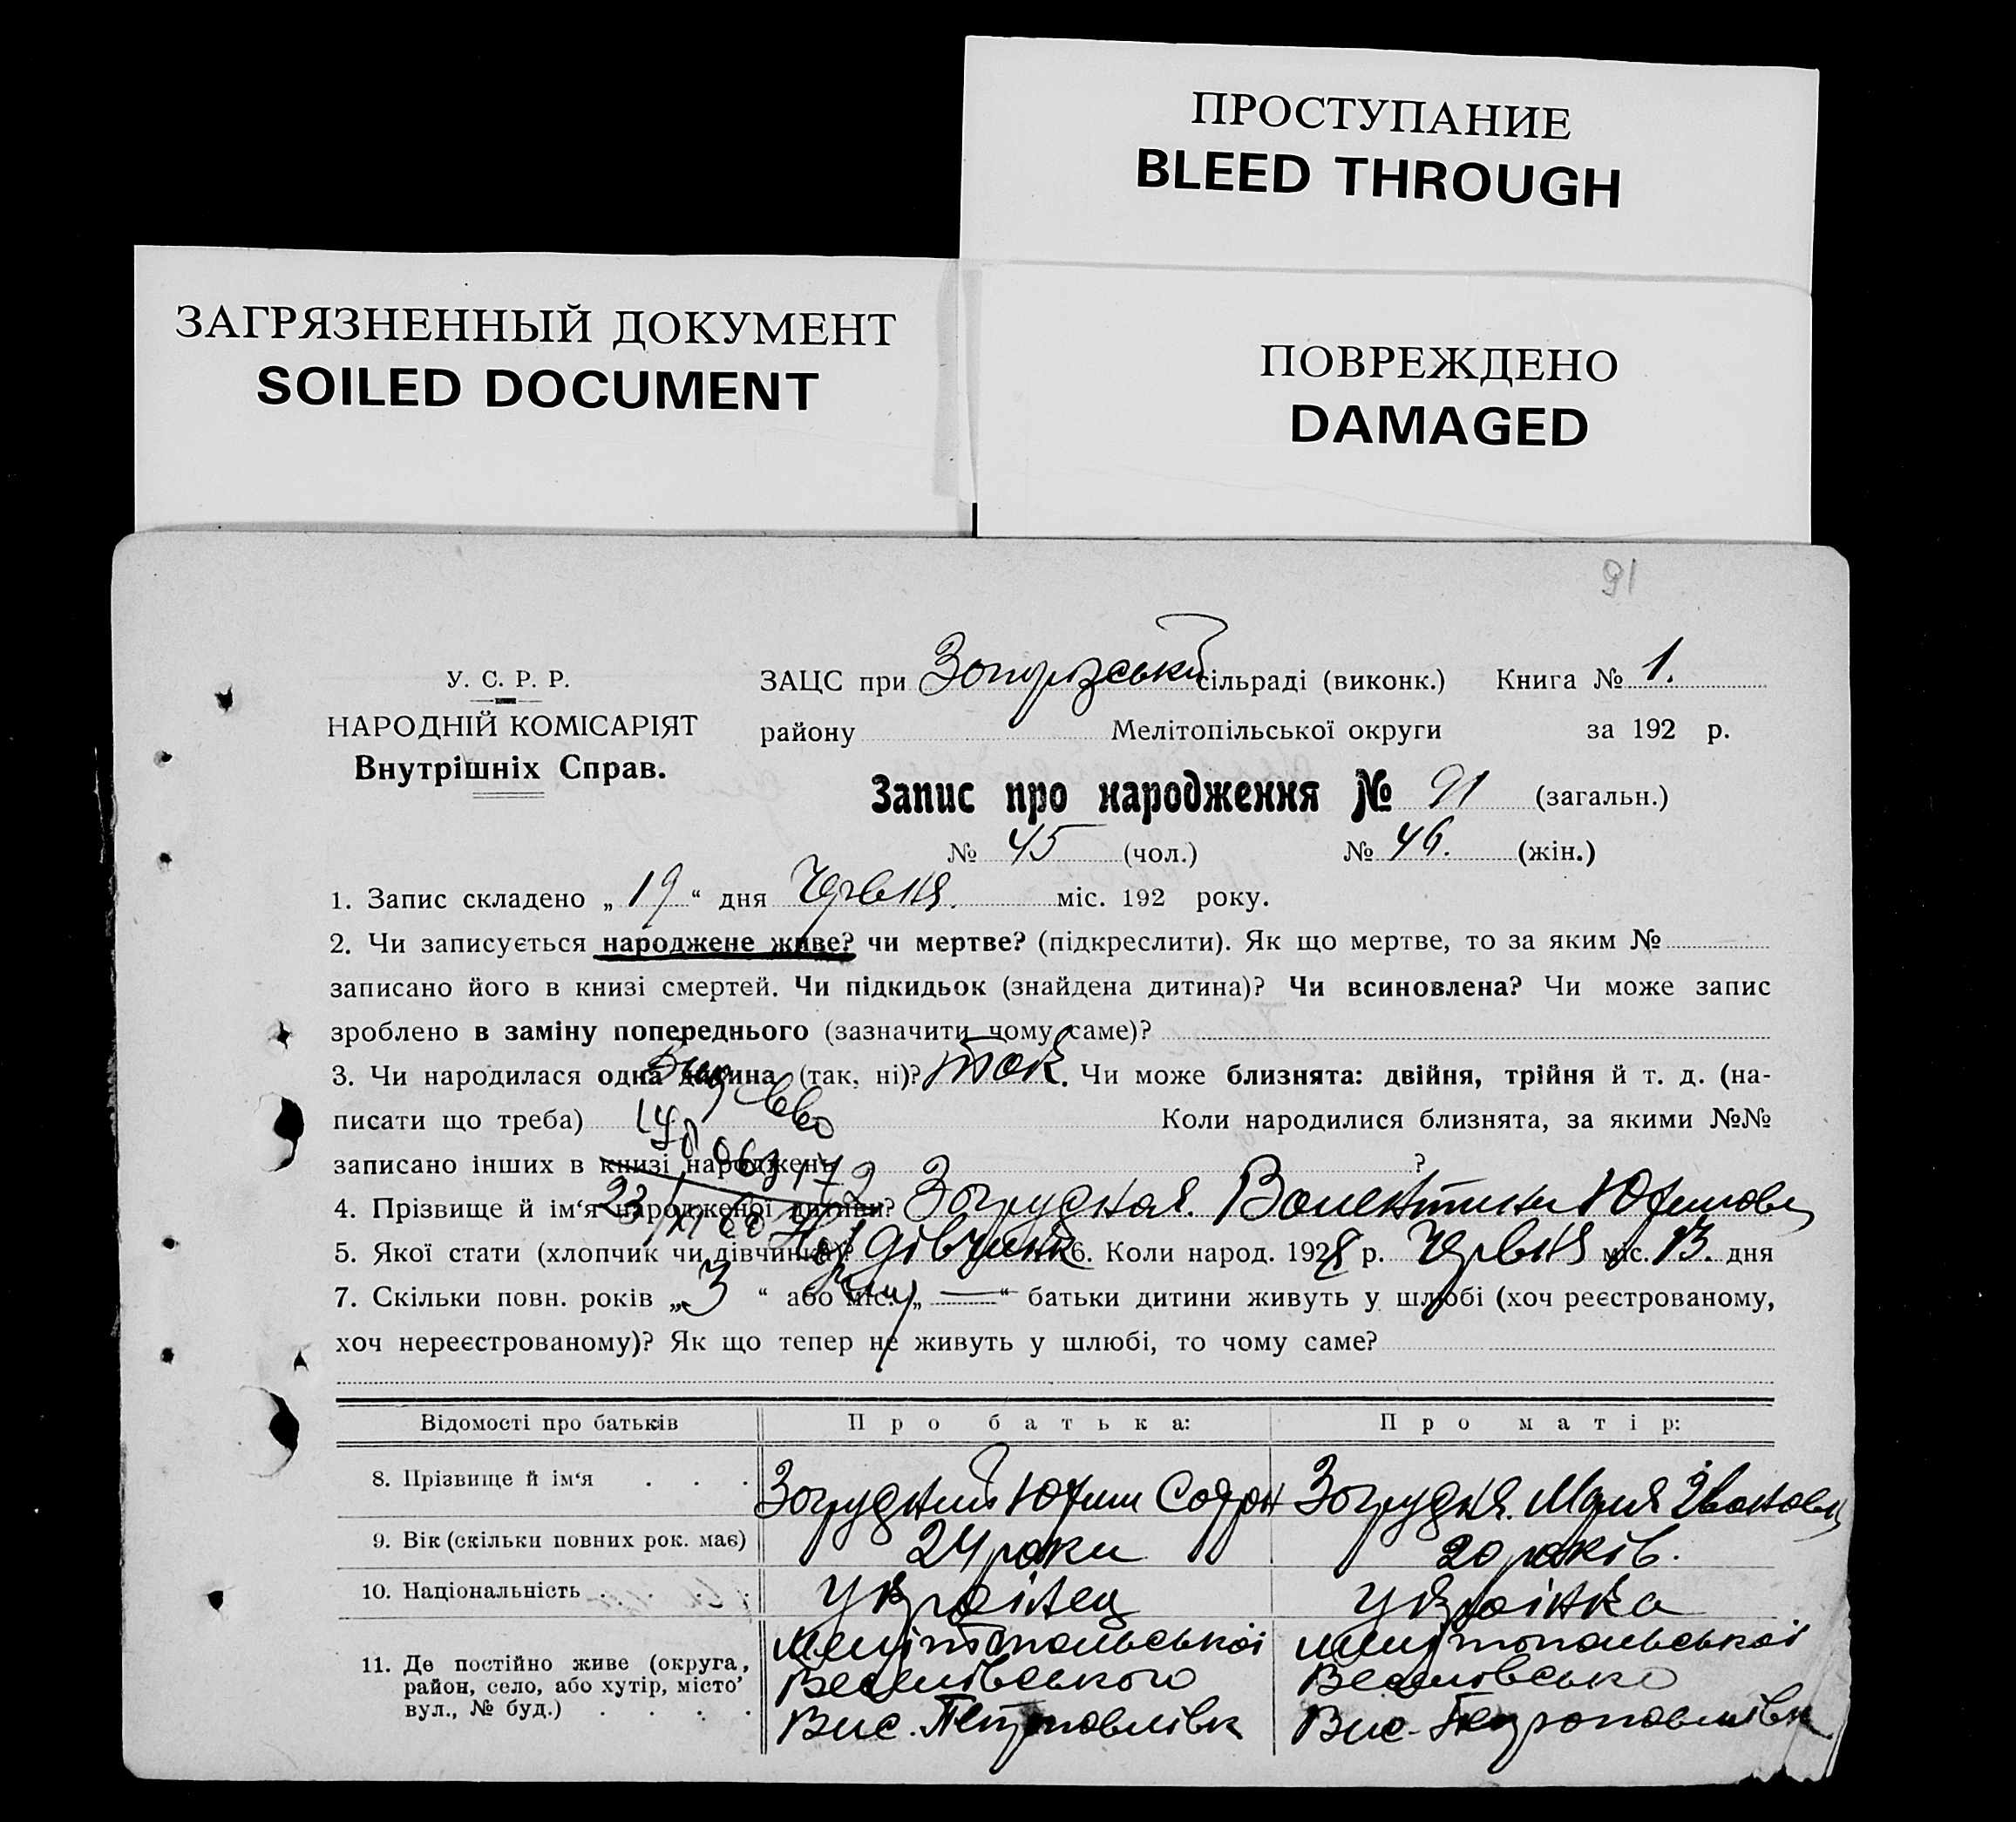 ПРОСТУПАНИЕ
BLEED THROUGH
ЗАГРЯЗНЕННЫЙ ДОКУМЕНТ
SOILED DOCUMENT
ПОВРЕЖДЕНО
DAMAGED
91
У. С. Р. Р.
НАРОДНІЙ КОМІСАРІЯТ
Внутрішніх Справ.
ЗАЦС при сільраді (виконк.) Книга № 1.
району Мелітопільської округи за 192 р.
Запис про народження № 91 (загальн.)
№ 45 (чол.) № 46. (жін.)
1. Запис складено „ 19 “ дня Червня. міс. 192 року.
2. Чи записується народжене живе? чи мертве? (підкреслити). Як що мертве, то за яким №
записано його в книзі смертей. Чи підкидьок (знайдена дитина)? Чи всиновлена? Чи може запис
зроблено в заміну попереднього (зазначити чому саме)?
3. Чи народилася одна дитина (так, ні)? так. Чи може близнята: двійня, трійня й т. д. (на-
писати що треба) Коли народилися близнята, за якими №№
записано інших в книзі народжень ?
4. Прізвище й ім‘я народженої дитини? Загрудная. Валентина Юхимовн
5. Якої стати (хлопчик чи дівчинка)? дівчинк 6. Коли народ. 1928 р. Червня міс. 13. дня
7. Скільки повн. років „ 3 “ або міс. „ — “ батьки дитини живуть у шлюбі (хоч реєстрованому,
хоч нереєстрованому)? Як що тепер не живуть у шлюбі, то чому саме?
Відомості про батьків Про батька: Про матір:
8. Прізвище й ім‘я . . . Загрудний Юхим Софрон Загрудня. Марія Івановн
9. Вік (скільки повних рок. має) 24 роки 20 років.
10. Національність . . . . Українец Українка
11. Де постійно живе (округа, Мелітопольської Мелітопольської
район, село, або хутір, місто’ Веселівського Веселівсько
вул., № буд.) . . . . Вис. Петропавлівк Вис. Петропавлівк